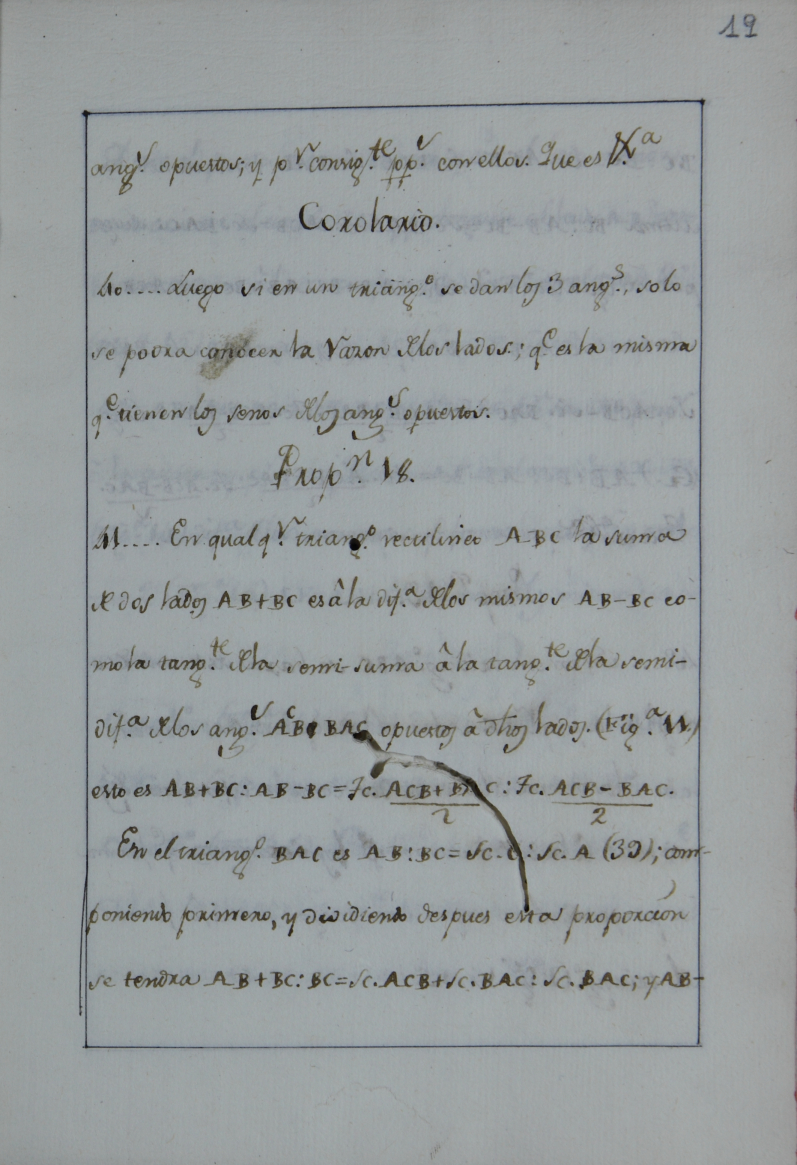 19
angˢ. opuestos; y pʳ. consigᵗᵉ. ppˢ. con ellos. Que es Vᵃ.
Corolario.
40.... Luego si en un triangᵒ. se dan los 3 angˢ., solo
se podra conocer la razon de los lados; qᵉ. es la misma
qᵉ. tienen los senos de los angˢ. opuestos.
Propⁿ. 18.
41.... En qualqʳ. triangᵒ. rectilineo ABC la suma
de dos lados AB+BC es â la difᵃ. de los mismos AB-BC co-
mo la tangᵗᵉ. de la semi-suma â la tangᵗᵉ. de la semi-
difᵃ. de los angˢ. ACB, BAC opuestos â dhos lados. (Figᵃ. 11.)
esto es AB+BC: AB-BC = Tc. ACB+BAC/2 : Tc. ACB-BAC/2.
En el triangᵒ. BAC es AB:BC = Sc. C : Sc. A (39); com-
poniendo primero, y dividiendo despues esta proporcion
se tendra AB+BC: BC = Sc. ACB + Sc. BAC : Sc. BAC; y AB-